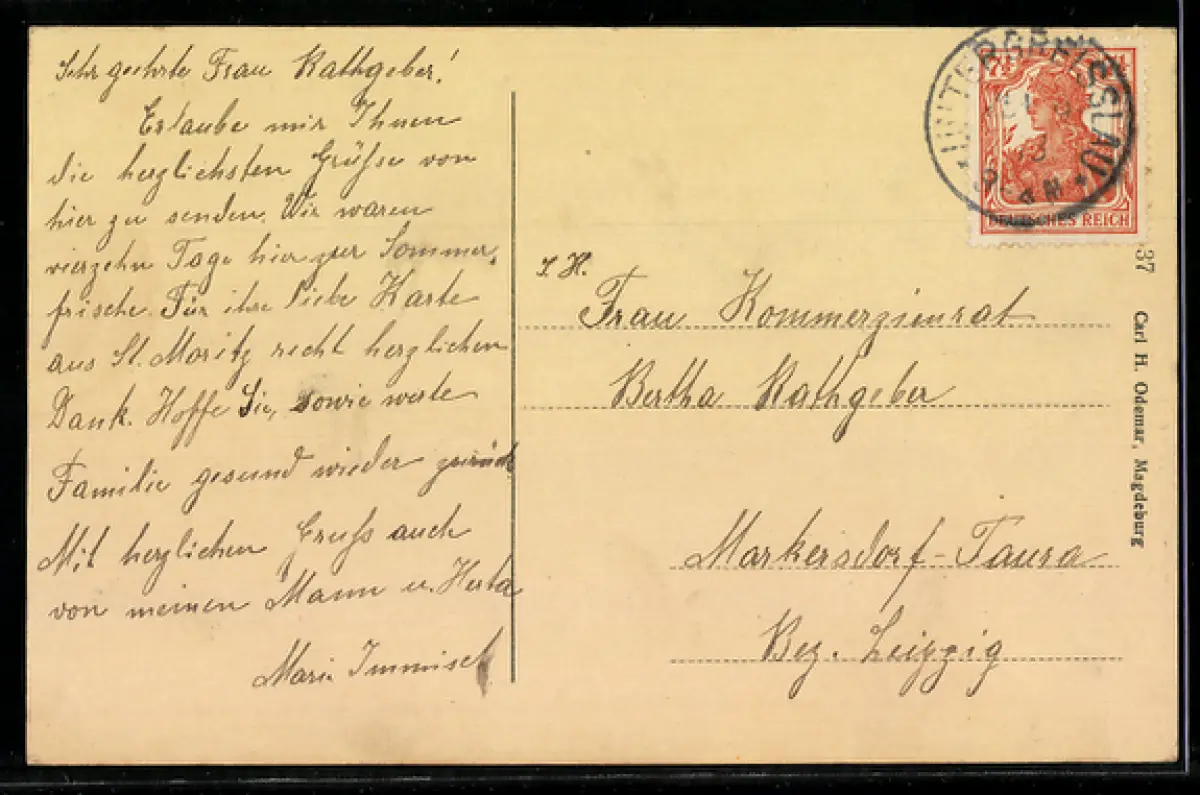 Sehr geehrte Frau Rathgeber!
Erlaube mir Ihnen
die herzlichsten Grüße von
hier zu senden. Wir waren
vierzehn Tage hier zur Sommer-
frische. Für ihre liebe Karte
aus St. Moritz recht herzlichen
Dank. Hoffe Sie, sowie werte
Familie gesund wieder zurück
Mit herzlichen Gruß auch
von meinen Mann u. Herta
Marie Immisch
I. H.
Frau Kommerzienrat
Bertha Rathgeber
Markersdorf-Taura
Bez. Leipzig
DEUTSCHES REICH
7½
37 Carl H. Odemar, Magdeburg